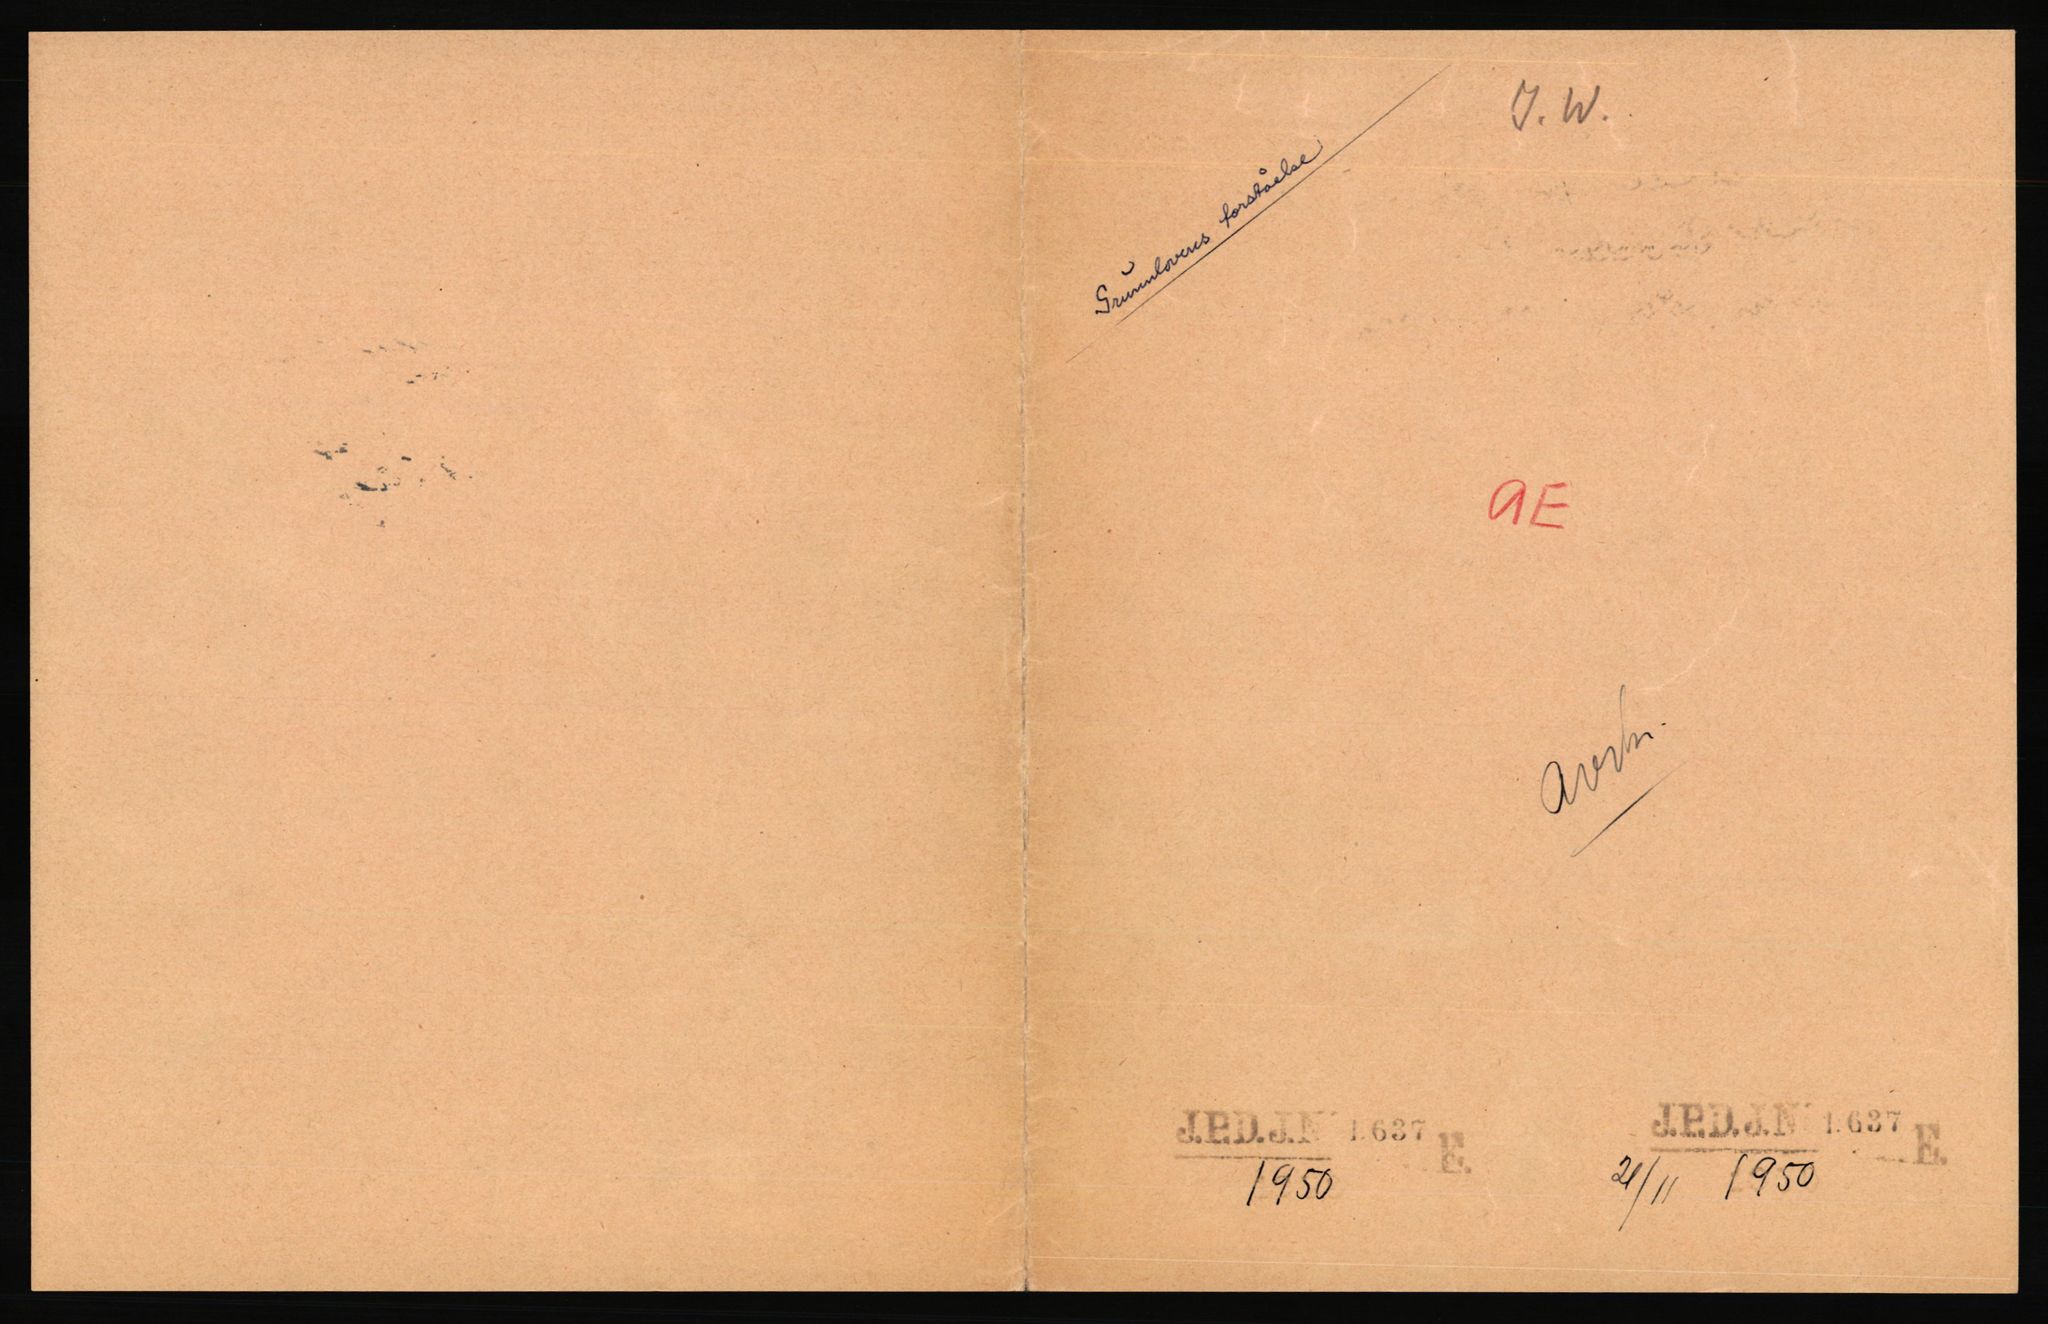 J. W.
Grunnlovens forståelse
AE
J.P.D.J.Nº 1637 E.
1950
J.P.D.J.Nº 1637 E.
21/11 1950